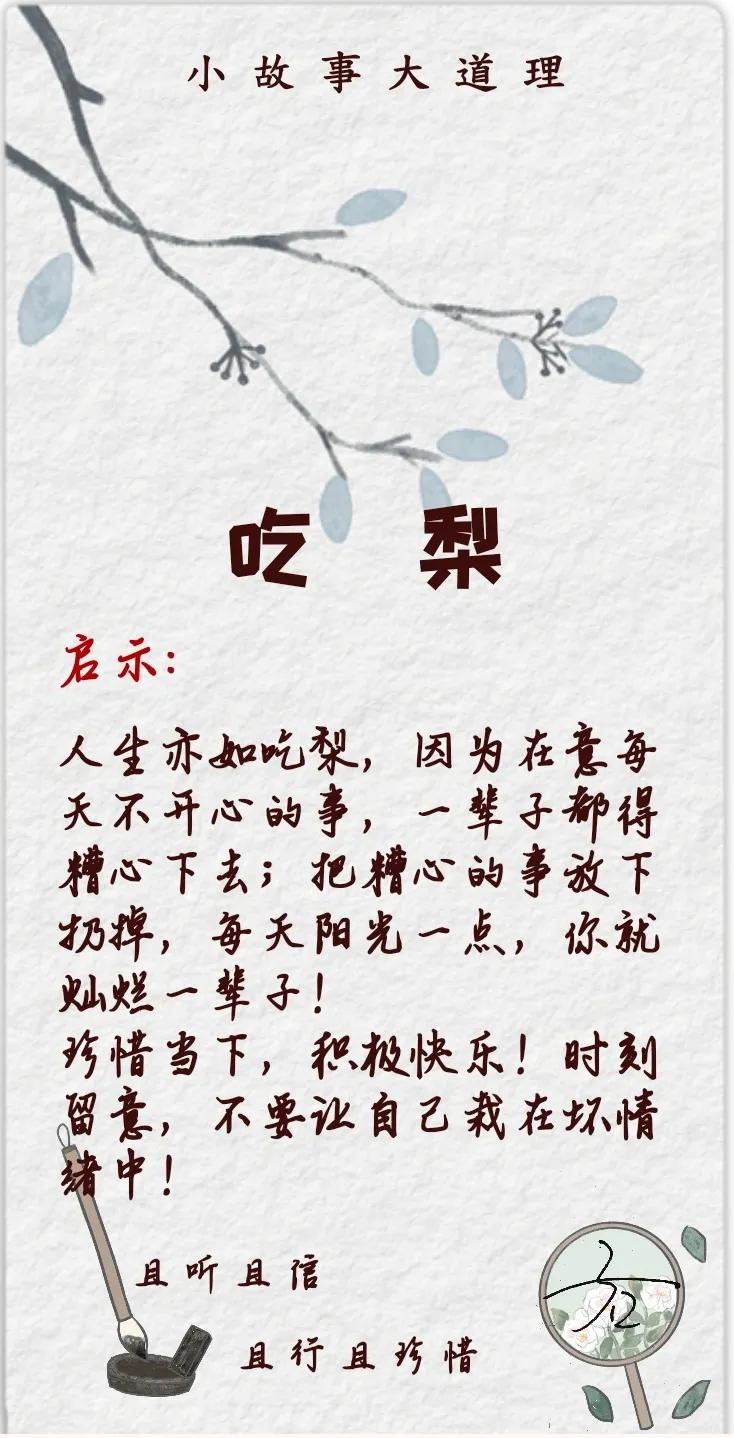 小故事大道理
吃 梨
启示：
人生亦如吃梨，因为在意每
天不开心的事，一辈子都得
糟心下去；把糟心的事放下
扔掉，每天阳光一点，你就
灿烂一辈子！
珍惜当下，积极快乐！时刻
留意，不要让自己栽在坏情
绪中！
且听且信
且行且珍惜